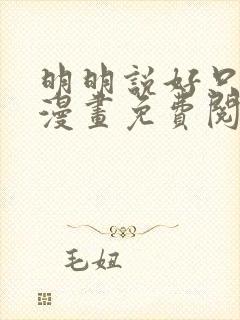 明明說好只
漫畫免費閱
毛妞